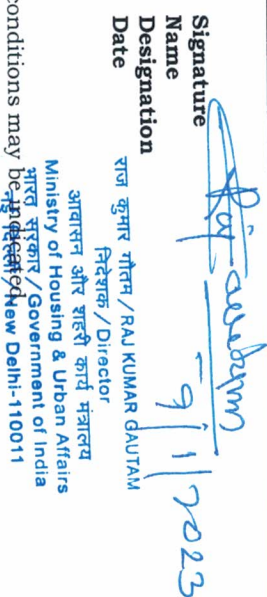 Signature
Name
Designation
Date
9/1/2023
राज कुमार गौतम/RAJ KUMAR GAUTAM
निदेशक/Director
आवासन और शहरी कार्य मंत्रालय
Ministry of Housing & Urban Affairs
भारत सरकार/Government of India
New Delhi-110011
conditions may be indicated